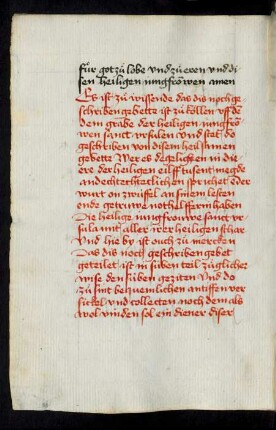 fúr got zú lobe vnd zú eren vnd di
sen heiligen iungfrowen amen
Es ist zú wissende das dis noch ge
schriben gebette ist zú köllen vff de
dem grabe der heiligen iungfro
wen sanct vrsulen Vnd stat do
geschriben von disem heilsamen
gebette Wer es degelichs in die
ere der heiligen eilff tusent megde
andechtenclichen sprichet der
wurt on zwifel an sinem lesten
ende getruwe nothelfferin haben
Die heilige iungfrouwe sanct vr
sula mit aller irer heiligen schar
Vnd hie by ist ouch zú mercken
Das dis noch geschriben gebet
geteilet ist in siben teil zú glicher
wise den siben geziten Vnd do
zú sint bequemlichen antiffen ver
sickel vnd collecten noch dem als
wol vinden sol ein diener diser